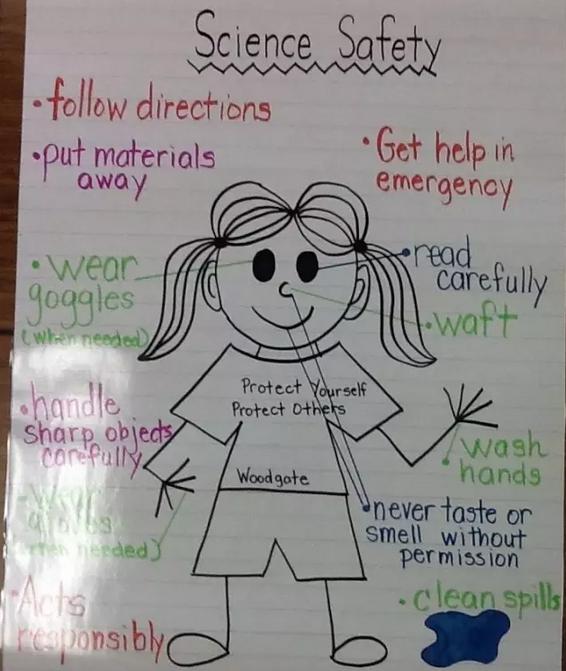 Science Safety
• follow directions
• put materials
away
• Get help in
emergency
• wear
goggles
(when needed)
• read
carefully
• waft
Protect Yourself
Protect Others
Woodgate
• handle
sharp objects
carefully
• wash
hands
- Wear
gloves
(when needed)
• never taste or
smell without
permission
• Acts
responsibly
• clean spills